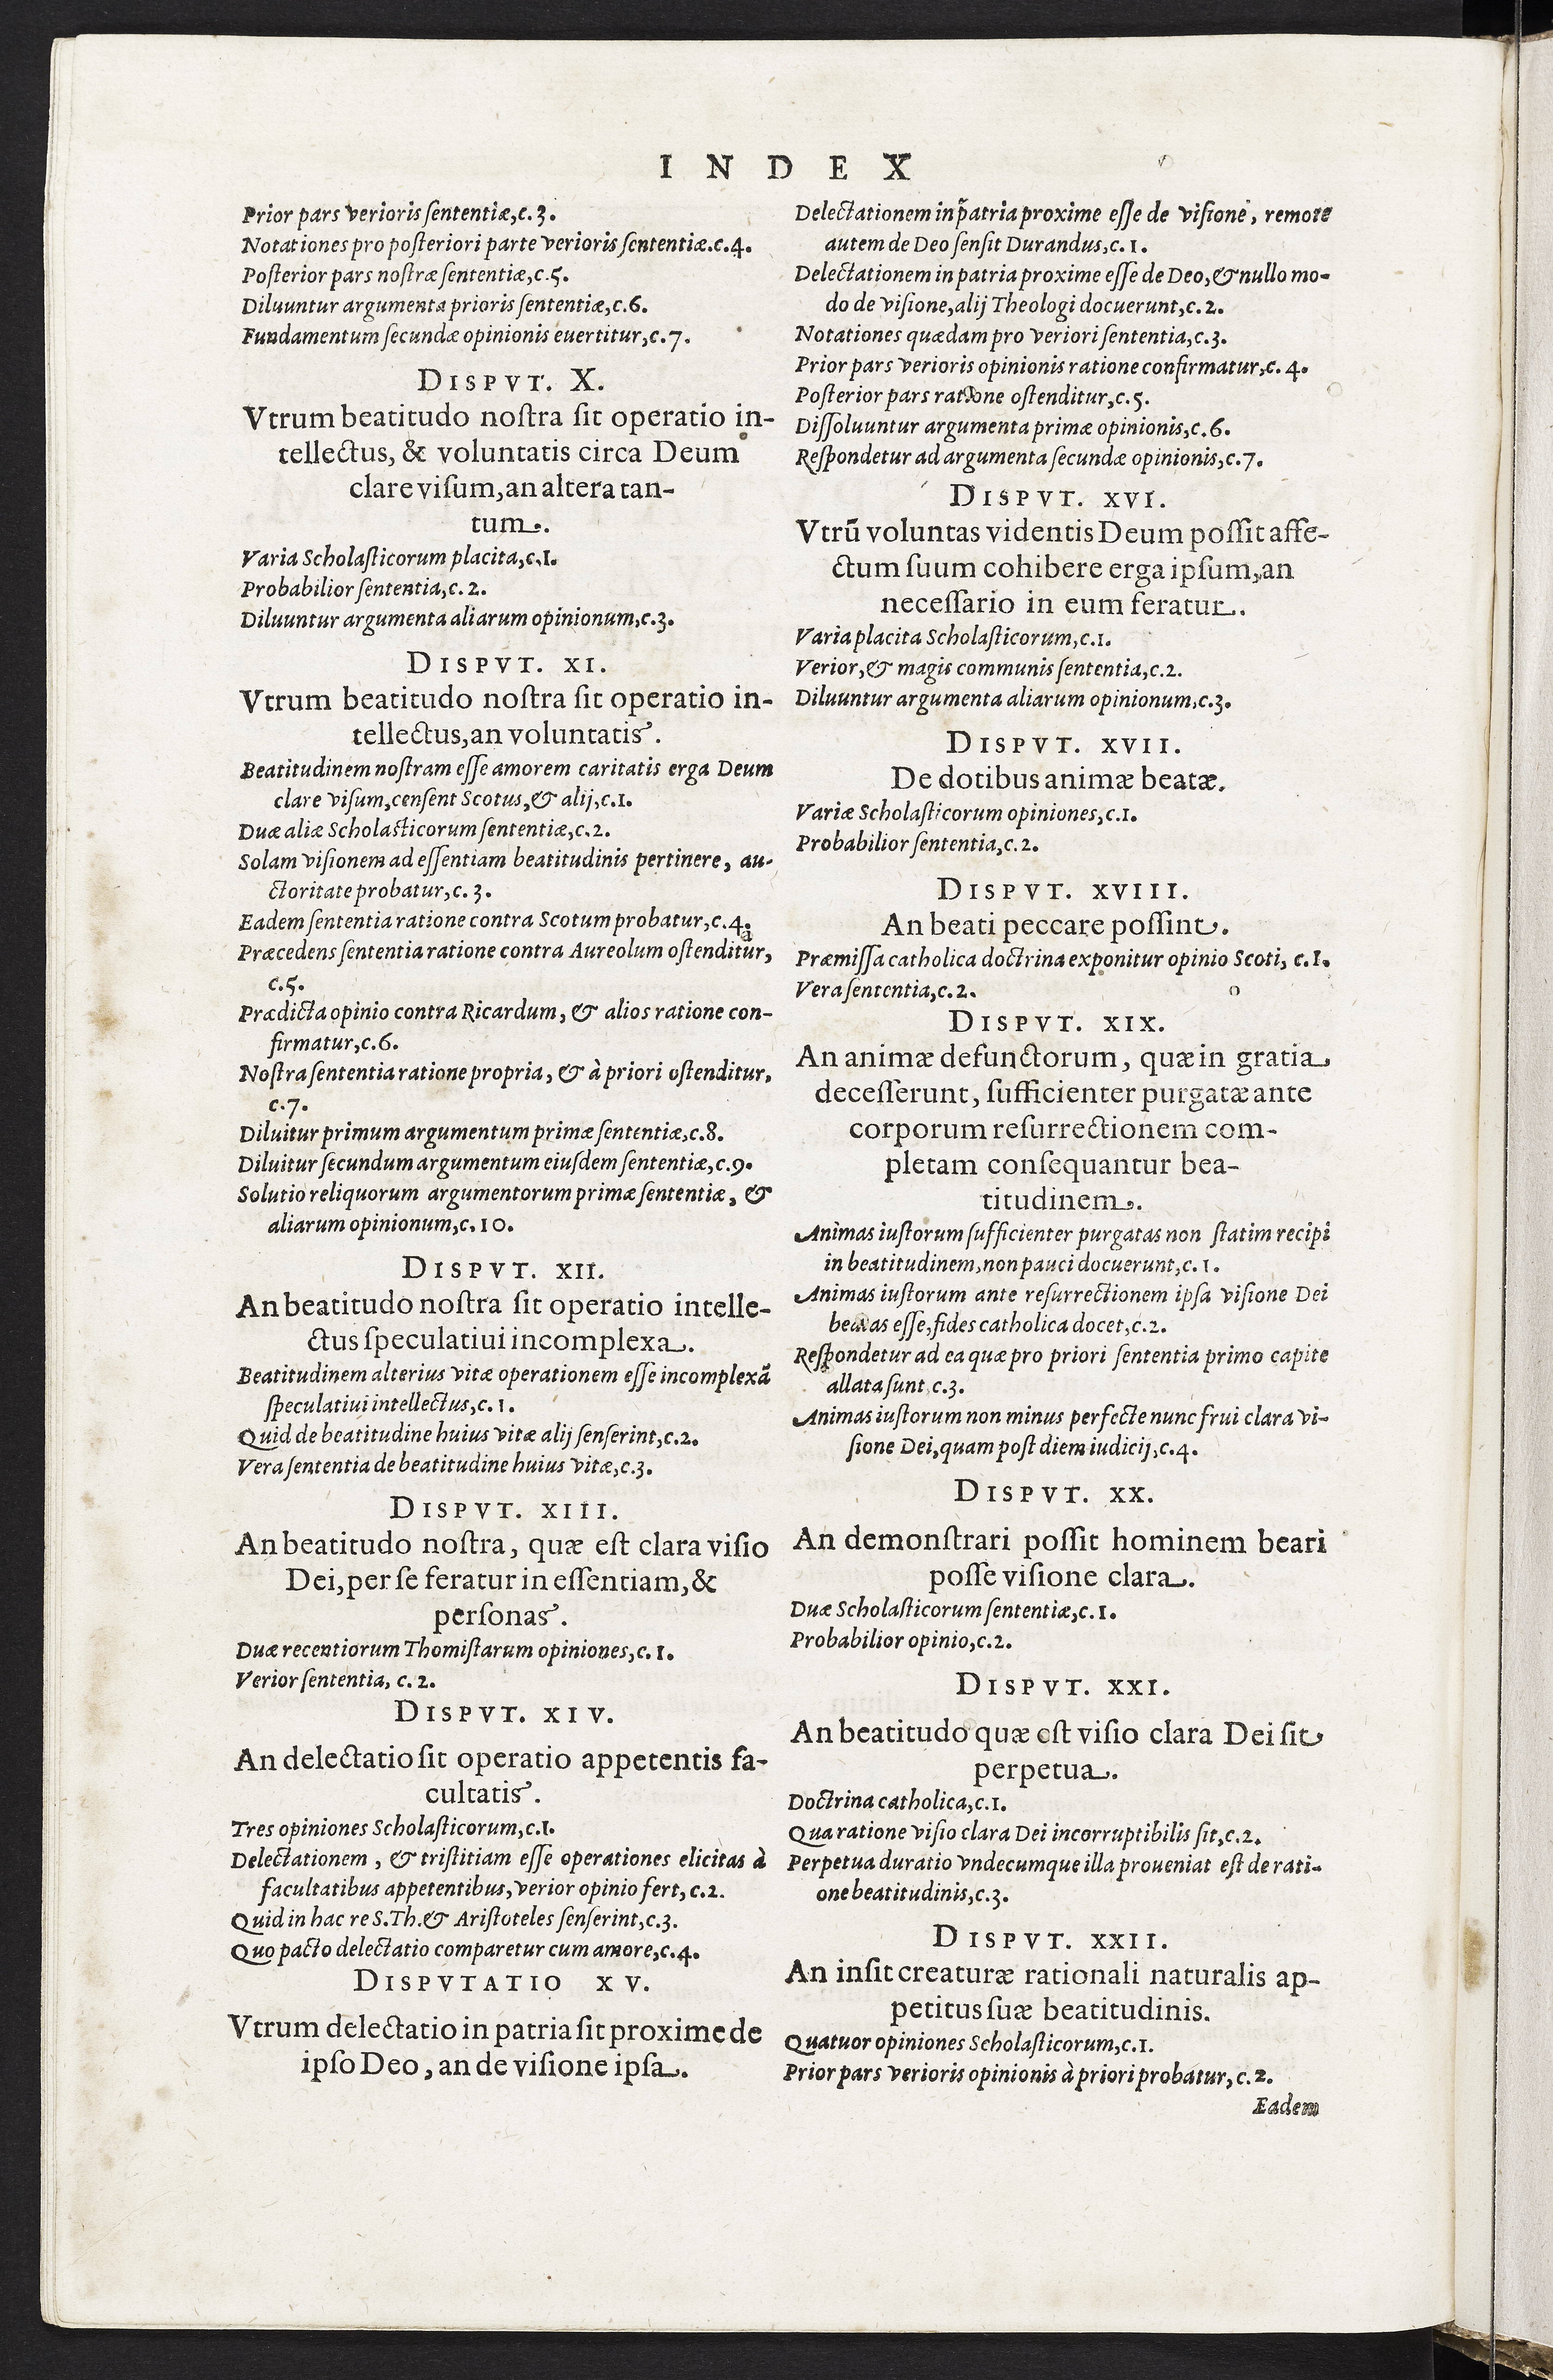 INDEX
Prior pars verioris ſententiæ,c.3.
Notationes pro poſteriori parte verioris ſententiæ.c.4.
Poſterior pars noſtræ ſententiæ,c.5.
Diluuntur argumenta prioris ſententiæ,c.6.
Fundamentum ſecundæ opinionis euertitur,c.7.
DISPVT. X.
Vtrum beatitudo noſtra ſit operatio in-
tellectus, & voluntatis circa Deum
clare viſum,an altera tan-
tum.
Varia Scholaſticorum placita,c.1.
Probabilior ſententia,c.2.
Diluuntur argumenta aliarum opinionum,c.3.
DISPVT. XI.
Vtrum beatitudo noſtra ſit operatio in-
tellectus,an voluntatis.
Beatitudinem noſtram eſſe amorem caritatis erga Deum
clare viſum,cenſent Scotus,& alij,c.1.
Duæ aliæ Scholaſticorum ſententiæ,c.2.
Solam viſionem ad eſſentiam beatitudinis pertinere, au-
ctoritate probatur,c.3.
Eadem ſententia ratione contra Scotum probatur,c.4.
Præcedens ſententia ratione contra Aureolum oſtenditur,
c.5.
Prædicta opinio contra Ricardum, & alios ratione con-
firmatur,c.6.
Noſtra ſententia ratione propria, & à priori oſtenditur,
c.7.
Diluitur primum argumentum primæ ſententiæ,c.8.
Diluitur ſecundum argumentum eiuſdem ſententiæ,c.9.
Solutio reliquorum argumentorum primæ ſententiæ, &
aliarum opinionum,c.10.
DISPVT. XII.
An beatitudo noſtra ſit operatio intelle-
ctus ſpeculatiui incomplexa.
Beatitudinem alterius vitæ operationem eſſe incomplexã
ſpeculatiui intellectus,c.1.
Quid de beatitudine huius vitæ alij ſenſerint,c.2.
Vera ſententia de beatitudine huius vitæ,c.3.
DISPVT. XIII.
An beatitudo noſtra, quæ eſt clara viſio
Dei,per ſe feratur in eſſentiam,&
perſonas.
Duæ recentiorum Thomiſtarum opiniones,c.1.
Verior ſententia, c.2.
DISPVT. XIV.
An delectatio ſit operatio appetentis fa-
cultatis.
Tres opiniones Scholaſticorum,c.1.
Delectationem , & triſtitiam eſſe operationes elicitas à
facultatibus appetentibus,verior opinio fert, c.2.
Quid in hac re S.Th.& Ariſtoteles ſenſerint,c.3.
Quo pacto delectatio comparetur cum amore,c.4.
DISPVTATIO XV.
Vtrum delectatio in patria ſit proxime de
ipſo Deo, an de viſione ipſa.
Delectationem in patria proxime eſſe de viſione, remote
autem de Deo ſenſit Durandus,c.1.
Delectationem in patria proxime eſſe de Deo,& nullo mo-
do de viſione,alij Theologi docuerunt,c.2.
Notationes quædam pro veriori ſententia,c.3.
Prior pars verioris opinionis ratione confirmatur,c.4.
Poſterior pars ratione oſtenditur,c.5.
Diſſoluuntur argumenta primæ opinionis,c.6.
Reſpondetur ad argumenta ſecundæ opinionis,c.7.
DISPVT. XVI.
Vtrũ voluntas videntis Deum poſſit affe-
ctum ſuum cohibere erga ipſum,an
neceſſario in eum feratur.
Varia placita Scholaſticorum,c.1.
Verior,& magis communis ſententia,c.2.
Diluuntur argumenta aliarum opinionum,c.3.
DISPVT. XVII.
De dotibus animæ beatæ.
Variæ Scholaſticorum opiniones,c.1.
Probabilior ſententia,c.2.
DISPVT. XVIII.
An beati peccare poſſint.
Præmiſſa catholica doctrina exponitur opinio Scoti, c.1.
Vera ſententia,c.2.
DISPVT. XIX.
An animæ defunctorum, quæ in gratia
deceſſerunt, ſufficienter purgatæ ante
corporum reſurrectionem com-
pletam conſequantur bea-
titudinem.
Animas iuſtorum ſufficienter purgatas non ſtatim recipi
in beatitudinem,non pauci docuerunt,c.1.
Animas iuſtorum ante reſurrectionem ipſa viſione Dei
beatas eſſe,fides catholica docet,c.2.
Reſpondetur ad ea quæ pro priori ſententia primo capite
allata ſunt,c.3.
Animas iuſtorum non minus perfecte nunc frui clara vi-
ſione Dei,quam poſt diem iudicij,c.4.
DISPVT. XX.
An demonſtrari poſſit hominem beari
poſſe viſione clara.
Duæ Scholaſticorum ſententiæ,c.1.
Probabilior opinio,c.2.
DISPVT. XXI.
An beatitudo quæ eſt viſio clara Dei ſit
perpetua.
Doctrina catholica,c.1.
Qua ratione viſio clara Dei incorruptibilis ſit,c.2.
Perpetua duratio vndecumque illa proueniat eſt de rati-
one beatitudinis,c.3.
DISPVT. XXII.
An inſit creaturæ rationali naturalis ap-
petitus ſuæ beatitudinis.
Quatuor opiniones Scholaſticorum,c.1.
Prior pars verioris opinionis à priori probatur, c.2.
Eadem